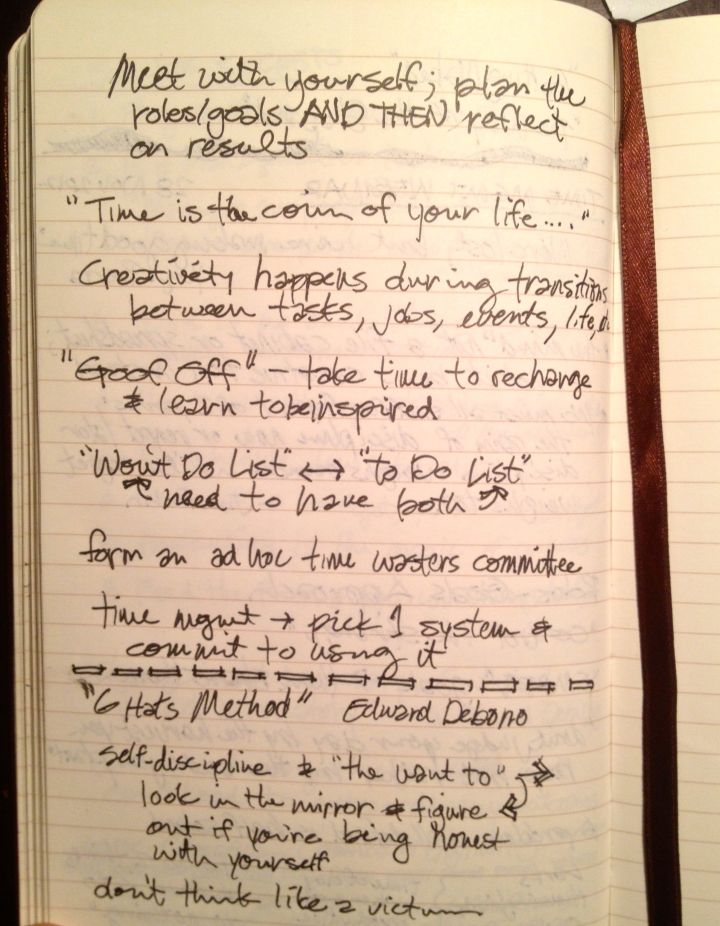 Meet with yourself; plan the
roles/goals AND THEN reflect
on results
"Time is the coin of your life...."
Creativity happens during transitions
between tasks, jobs, events, life,
"Goof Off" – take time to recharge
& learn to be inspired
"Won't Do List" ↔ "To Do List"
need to have both
form an ad hoc time wasters committee
time mgmt → pick 1 system &
commit to using it
"6 Hats Method" Edward Debono
self-discipline & "the want to"
look in the mirror & figure
out if you're being honest
with yourself
don't think like a victum